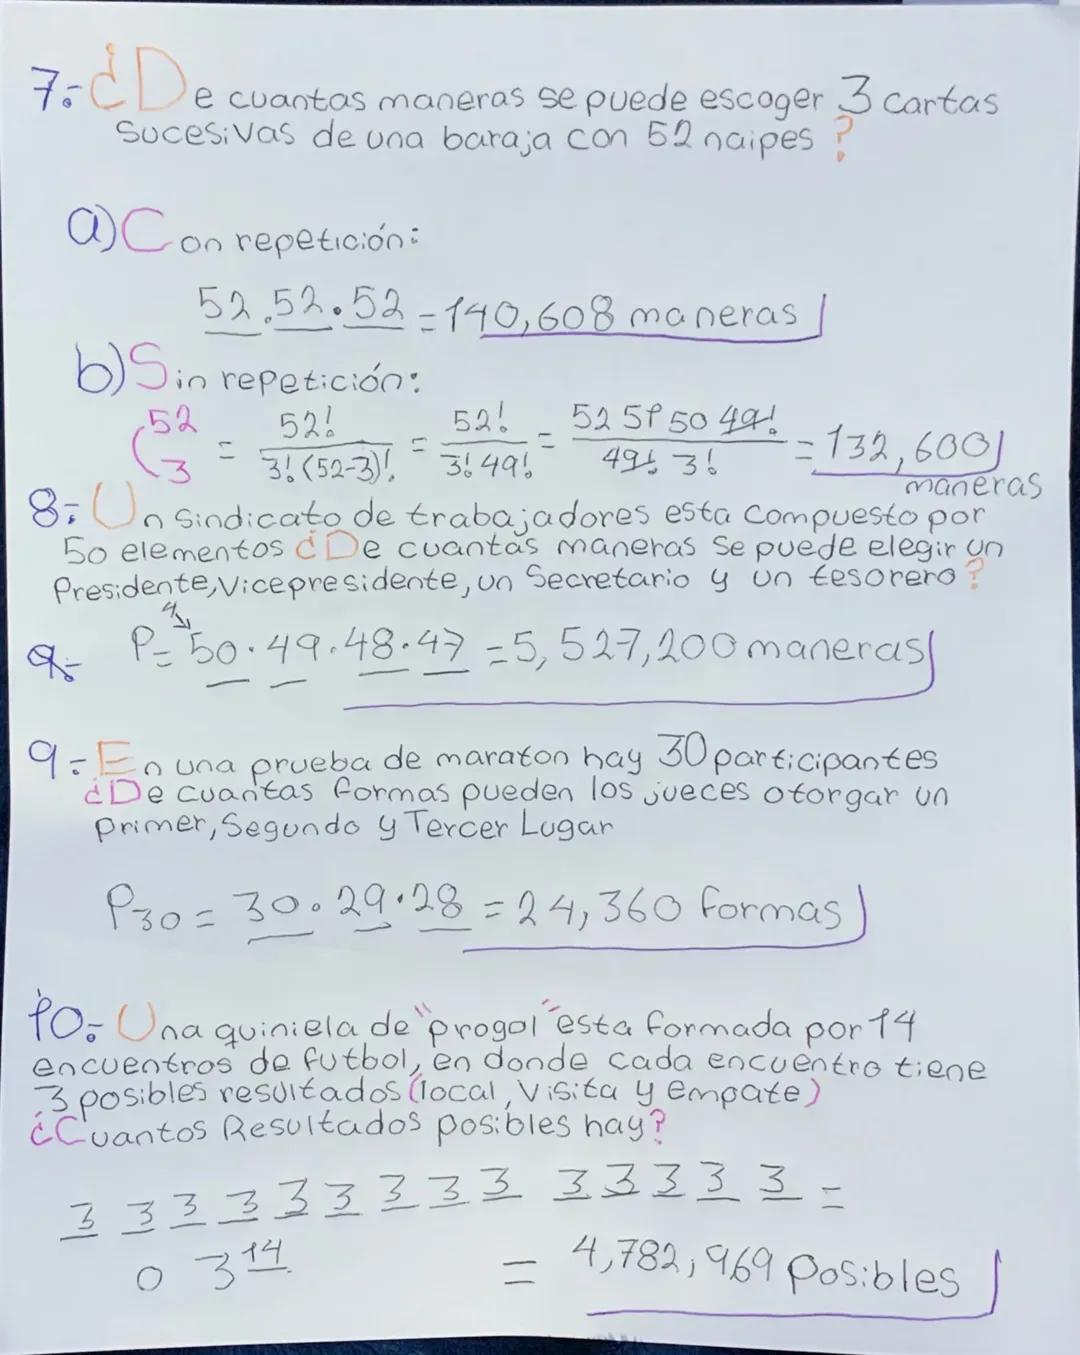 7.- ¿De cuantas maneras se puede escoger 3 cartas
sucesivas de una baraja con 52 naipes?
a) Con repetición:
52.52.52 = 140,608 maneras
b) Sin repetición:
(52 3 = 52!/3!(52-3)! = 52!/3!49! = 52 51 50 49!/49! 3! = 132,600
maneras
8.- Un Sindicato de trabajadores esta compuesto por
50 elementos ¿De cuantas maneras se puede elegir un
Presidente, Vicepresidente, un Secretario y un tesorero?
4
9.- P= 50.49.48.47 = 5,527,200 maneras
9.- En una prueba de maraton hay 30 participantes
¿De cuantas formas pueden los jueces otorgar un
primer, Segundo y Tercer Lugar
P30 = 30.29.28 = 24,360 formas
10.- Una quiniela de "progol" esta formada por 14
encuentros de futbol, en donde cada encuentro tiene
3 posibles resultados (local, Visita y empate)
¿Cuantos Resultados posibles hay?
3 3 3 3 3 3 3 3 3 3 3 3 3 3 =
o 3^14 = 4,782,969 posibles